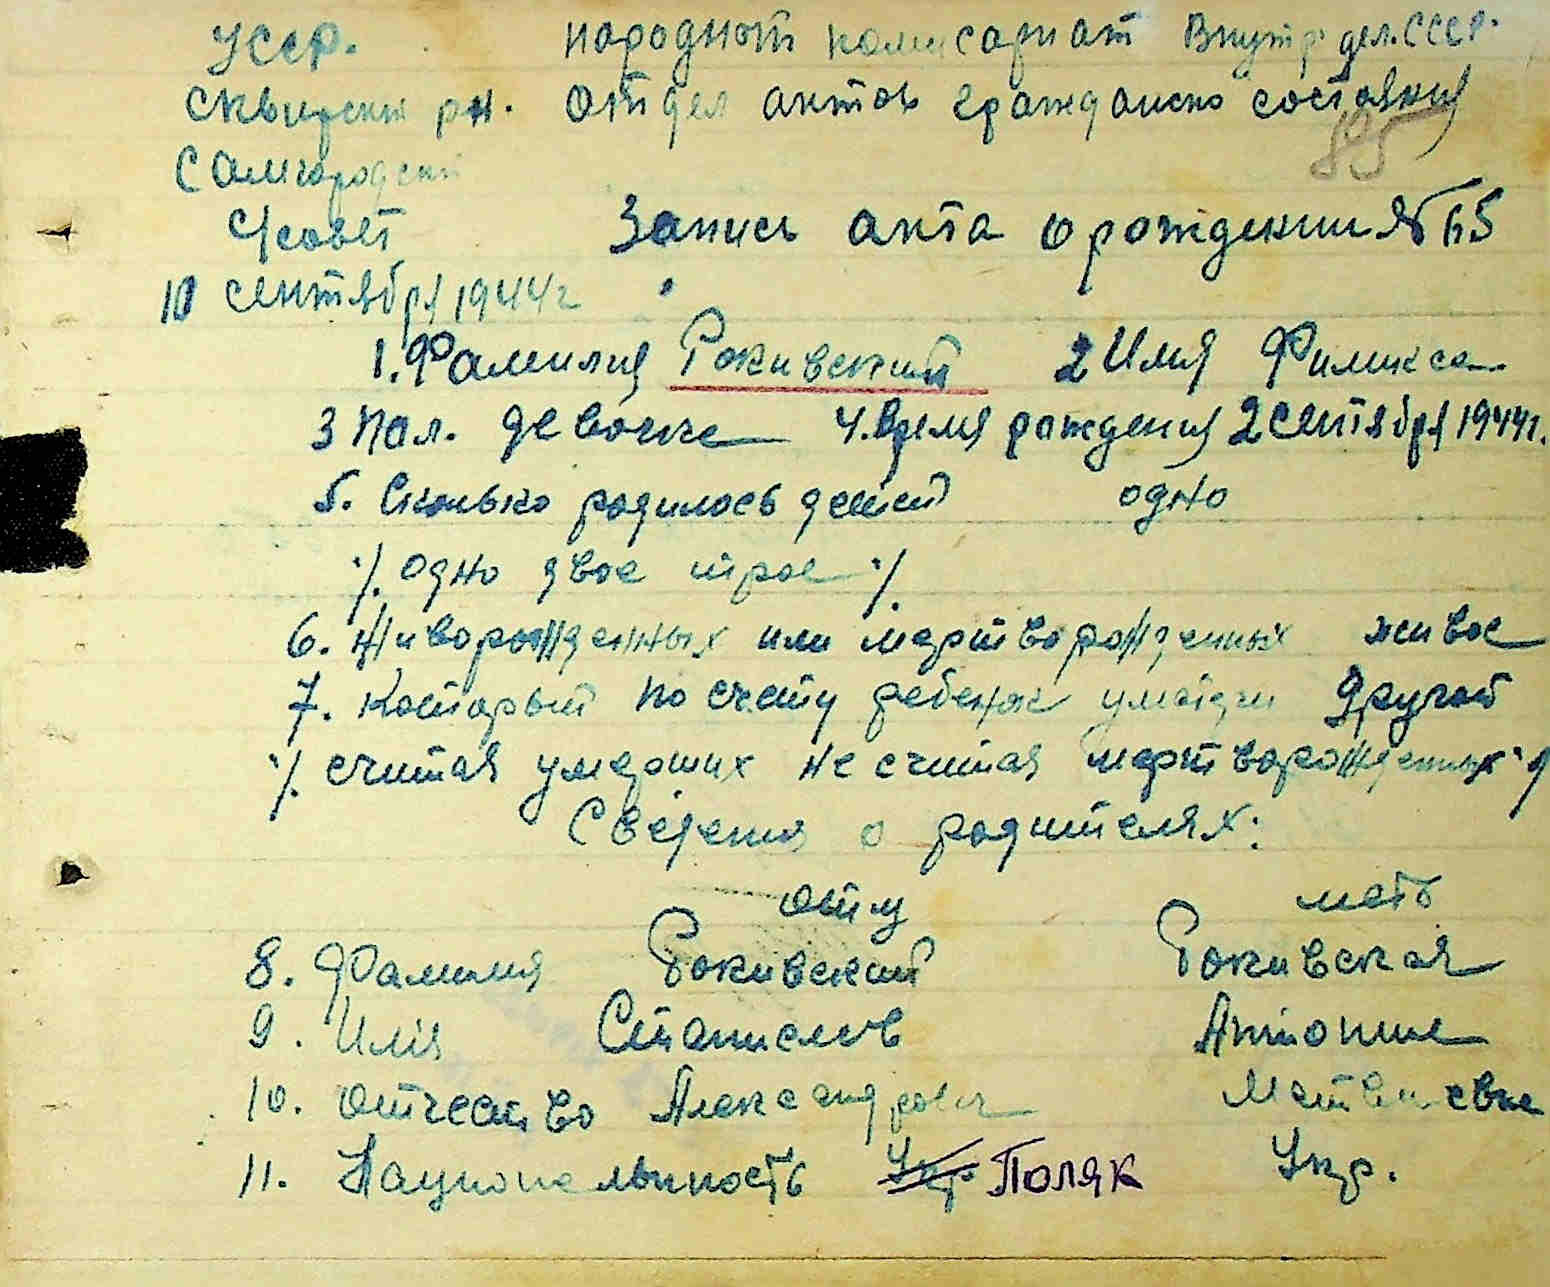 УССР. народной комисариат Внутр дел. СССР.
Сквирский рн. Отдел актов гражданско состаяния
85
Самгородский
С/совет Запись акта о рождении № 65
10 сентября 1944 г
1. Фамилия Рокивский 2 Имя Филикса
3 Пол. девочка 4. Время рождения 2 сентября 1944 г.
5. Сколько родилось детей одно
·/. одно двое трое ·/.
6. Живорожденных или мертворожденных живое
7. Который по счету ребенок у матери другой
·/. считая умерших не считая мертворожденных ·/
Сведения о родителях:
отец мать
8. Фамилия Рокивский Рокивская
9. Имя Станислав Антонина
10. Отчество Александрович Матвеевна
11. Национальность Укр Поляк Укр.